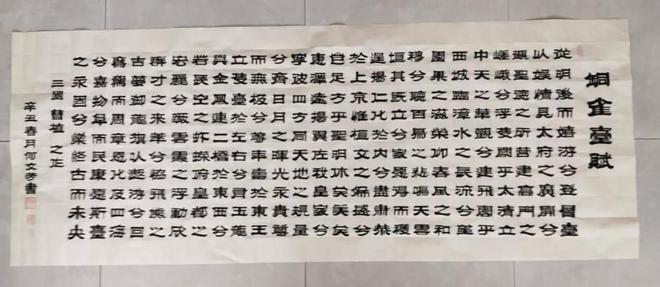 銅雀臺賦
從明後而嬉游兮登層臺
以娛情見太府之廣開兮
觀聖德之所營建高門之
嵯峨兮浮雙闕乎太清立
中天之華觀兮連飛閣乎
西城臨漳水之長流兮望
園果之滋榮仰春風之和
穆兮聽百鳥之悲鳴天雲
垣其既立兮家願得而獲
逞揚仁化於宇内兮盡肅恭
於上京惟桓文之爲盛兮
豈足方乎聖明休矣美矣
惠澤遠揚翼佐我皇家兮
寧彼四方同天地之規量
兮齊日月之輝光永貴尊
而無極兮等年壽於東王
立雙臺於左右兮有玉龍
與金鳳 二橋於東西兮
若長空之 俯皇都之
宏麗兮瞰雲霞之浮動欣
群才之來萃兮協飛熊之
吉夢御龍旂以遨遊兮回
鸞駕而周章恩化及四海
兮嘉物阜而民康願斯臺
之永固兮樂終古而未央
三國 曹植 之作
辛丑春月何文 書